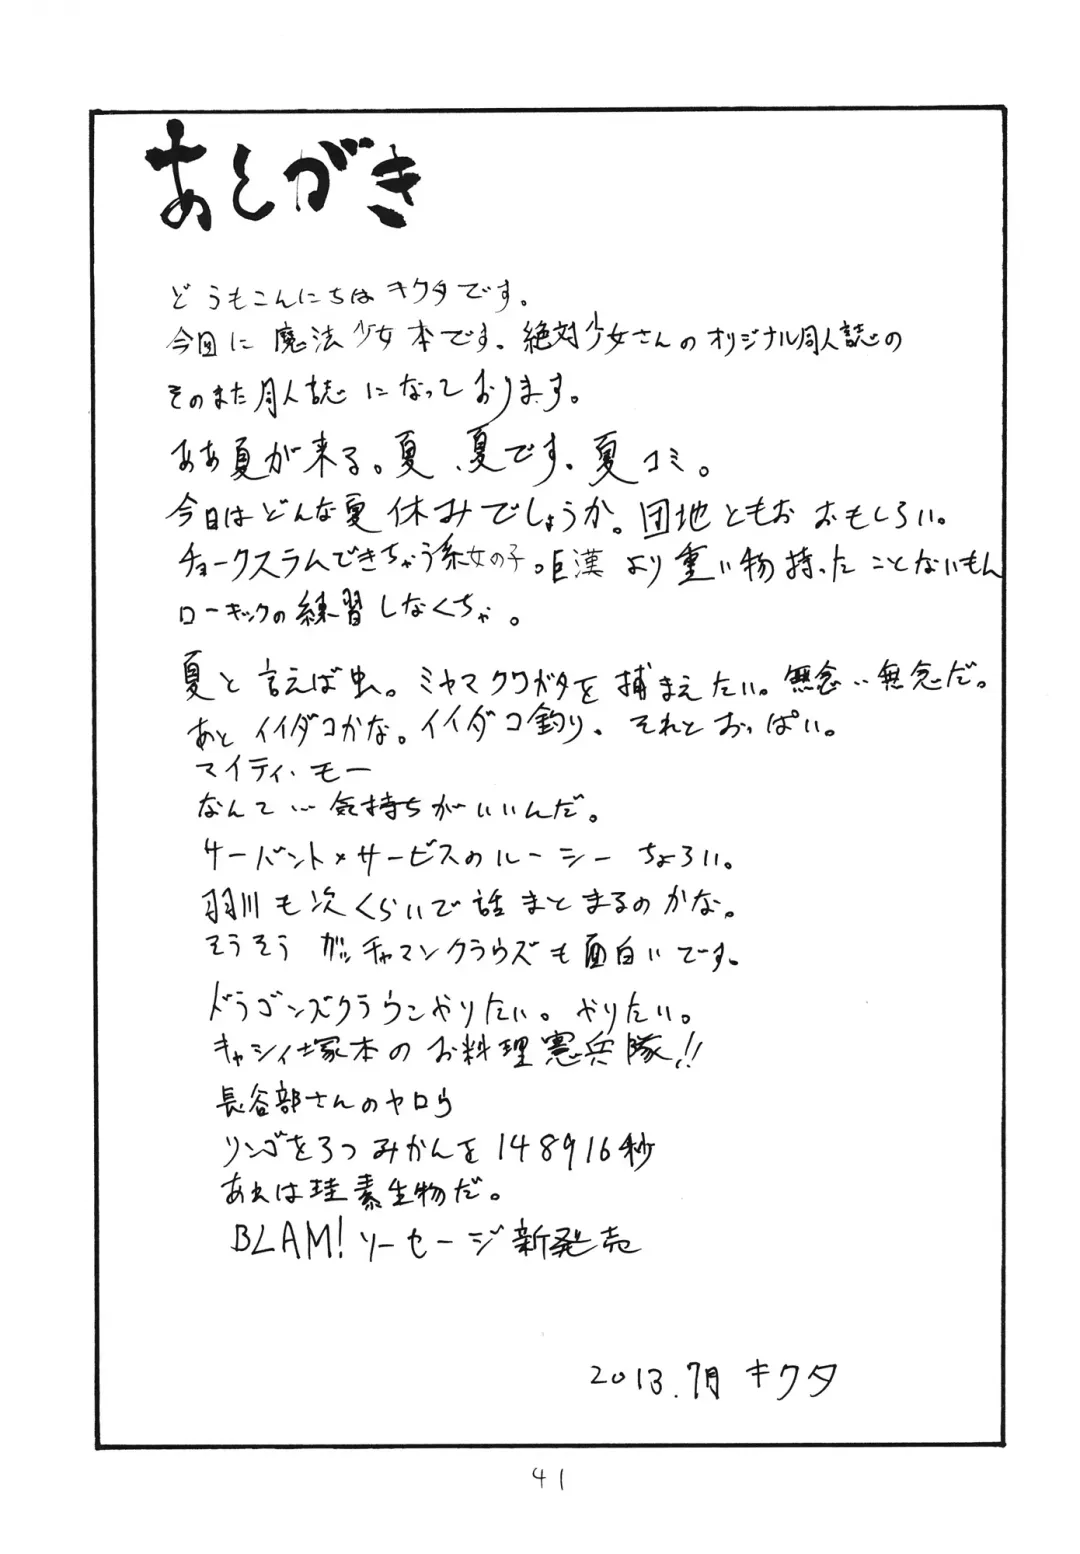 あしがき
どうもこんにちは キクタです。
今回は 魔法少女本です。絶対少女さんのオリジナル同人誌の
そのまた同人誌になっております。
ああ夏が来る。夏、夏です。夏コミ。
今日はどんな夏休みでしょうか。団地ともお おもしろい。
チョークスラムできちゃう系女の子。巨漢より重い物持ったことないもん
ローキックの練習しなくちゃ。
夏と言えば虫。ミヤマクワガタを捕まえたい。無念…無念だ。
あと イイダコかな。イイダコ釣り、それとおっぱい。
マイティ・モー
なんて…気持ちがいいんだ。
サーバント×サービスのルーシー ちょろい。
羽川も次くらいで話まとまるのかな。
そうそう ガッチャマンクラウズも面白いです。
ドラゴンズクラウンやりたい。やりたい。
キャシィ塚本のお料理憲兵隊!!
長谷部さんのヤロウ
リンゴを3つ みかんを148916秒
あれは珪素生物だ。
BLAM! ソーセージ新発売
2013.7月 キクタ
41